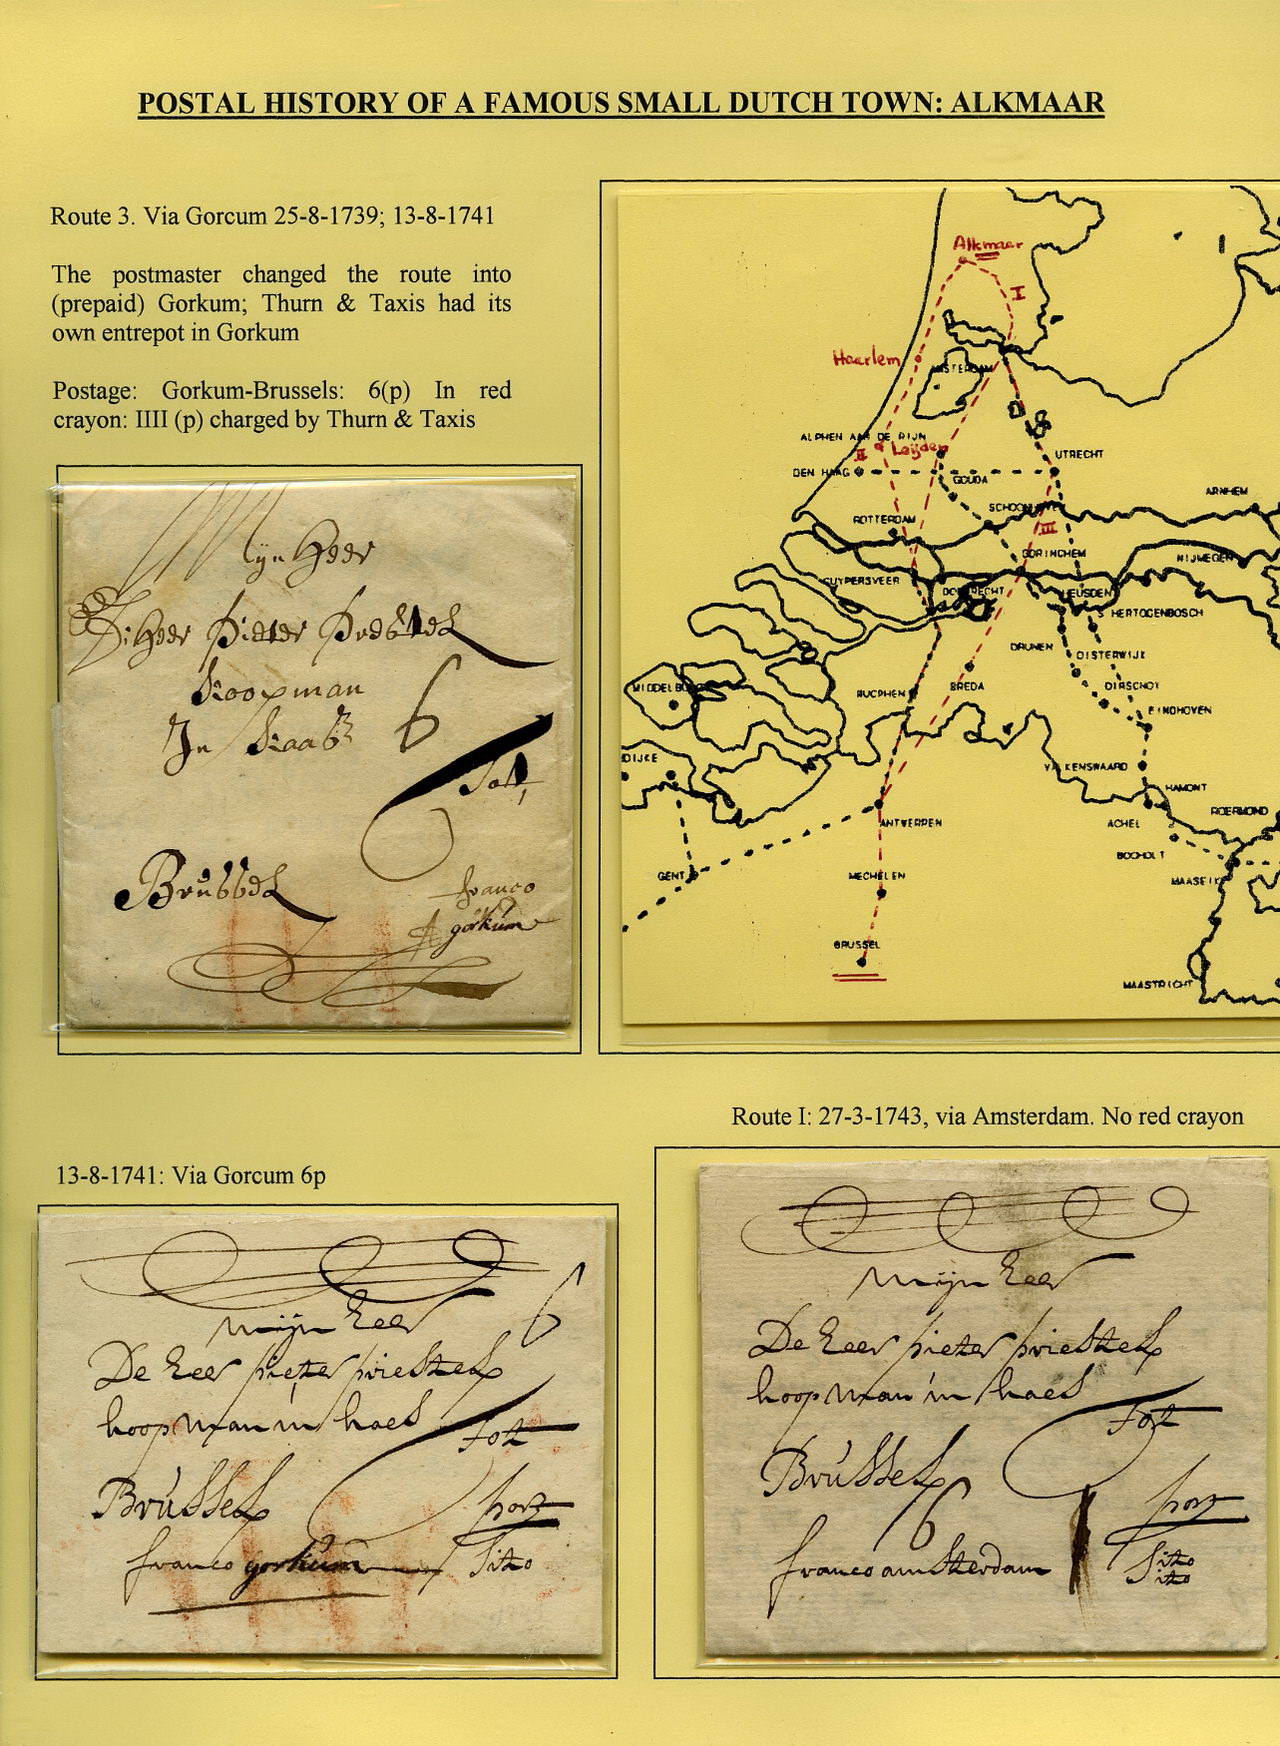 POSTAL HISTORY OF A FAMOUS SMALL DUTCH TOWN: ALKMAAR
Route 3. Via Gorcum 25-8-1739; 13-8-1741
The postmaster changed the route into
(prepaid) Gorkum; Thurn & Taxis had its
own entrepot in Gorkum
Postage: Gorkum-Brussels: 6(p) In red
crayon: IIII (p) charged by Thurn & Taxis
Mijn Heer
Di Heer Pieter
Koopman
In Kaas
6
Tot
Brussel
franco
gorkum
Alkmaar
I
Haarlem
AMSTERDAM
ALPHEN AAN DE RIJN
II
Leijden
DEN HAAG
GOUDA
UTRECHT
ARNHEM
SCHOONHOVEN
III
ROTTERDAM
GORINCHEM
NIJMEGEN
CUYPERSVEER
DORDRECHT
HEUSDEN
'S HERTOGENBOSCH
DRUNEN
OISTERWIJK
MIDDELBURG
RUCPHEN
BREDA
OIRSCHOT
EINDHOVEN
DIJKE
VALKENSWAARD
HAMONT
ANTWERPEN
ACHEL
ROERMOND
BOCHOLT
GENT
MECHELEN
MAASEIK
BRUSSEL
MAASTRICHT
13-8-1741: Via Gorcum 6p
mijn Heer
6
De Heer pieter priestel
koopman in kaes
Tot
Brussel
port
franco gorkum
Sito
Route I: 27-3-1743, via Amsterdam. No red crayon
mijn Heer
De Heer pieter priestel
koopman in kaes
Tot
Brussel
6
port
franco amsterdam
Sito
ito